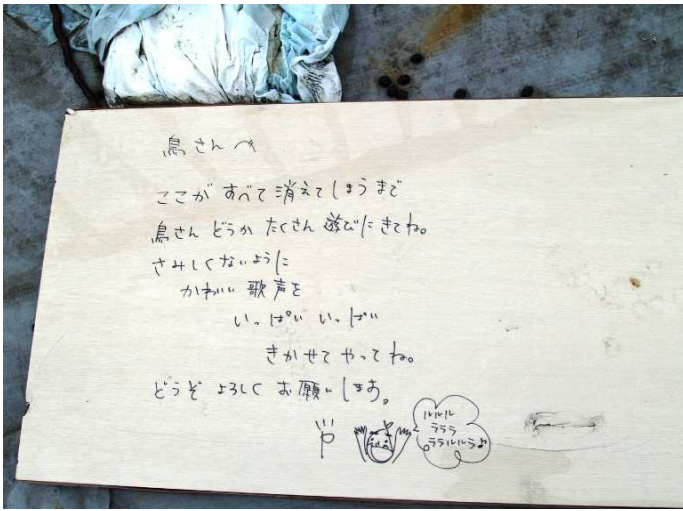 鳥さんへ
ここが すべて 消えてしまうまで
鳥さん どうか たくさん 遊びに きてね。
さみしくないように
かわいい 歌声を
いっぱい いっぱい
きかせて やってね。
どうぞ よろしく お願いします。
ルルル
ラララ
ララルルラ♪